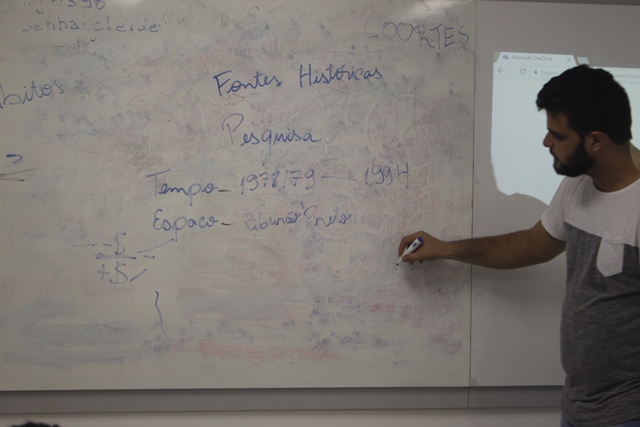 Senha: cleide
CORTES
ábitos
Fontes Históricas
Pesquisa
Tempo - 1978/79 — 1994
Espaço - Ribeirão Preto
- - 5
+ 5
Microsoft OneDrive